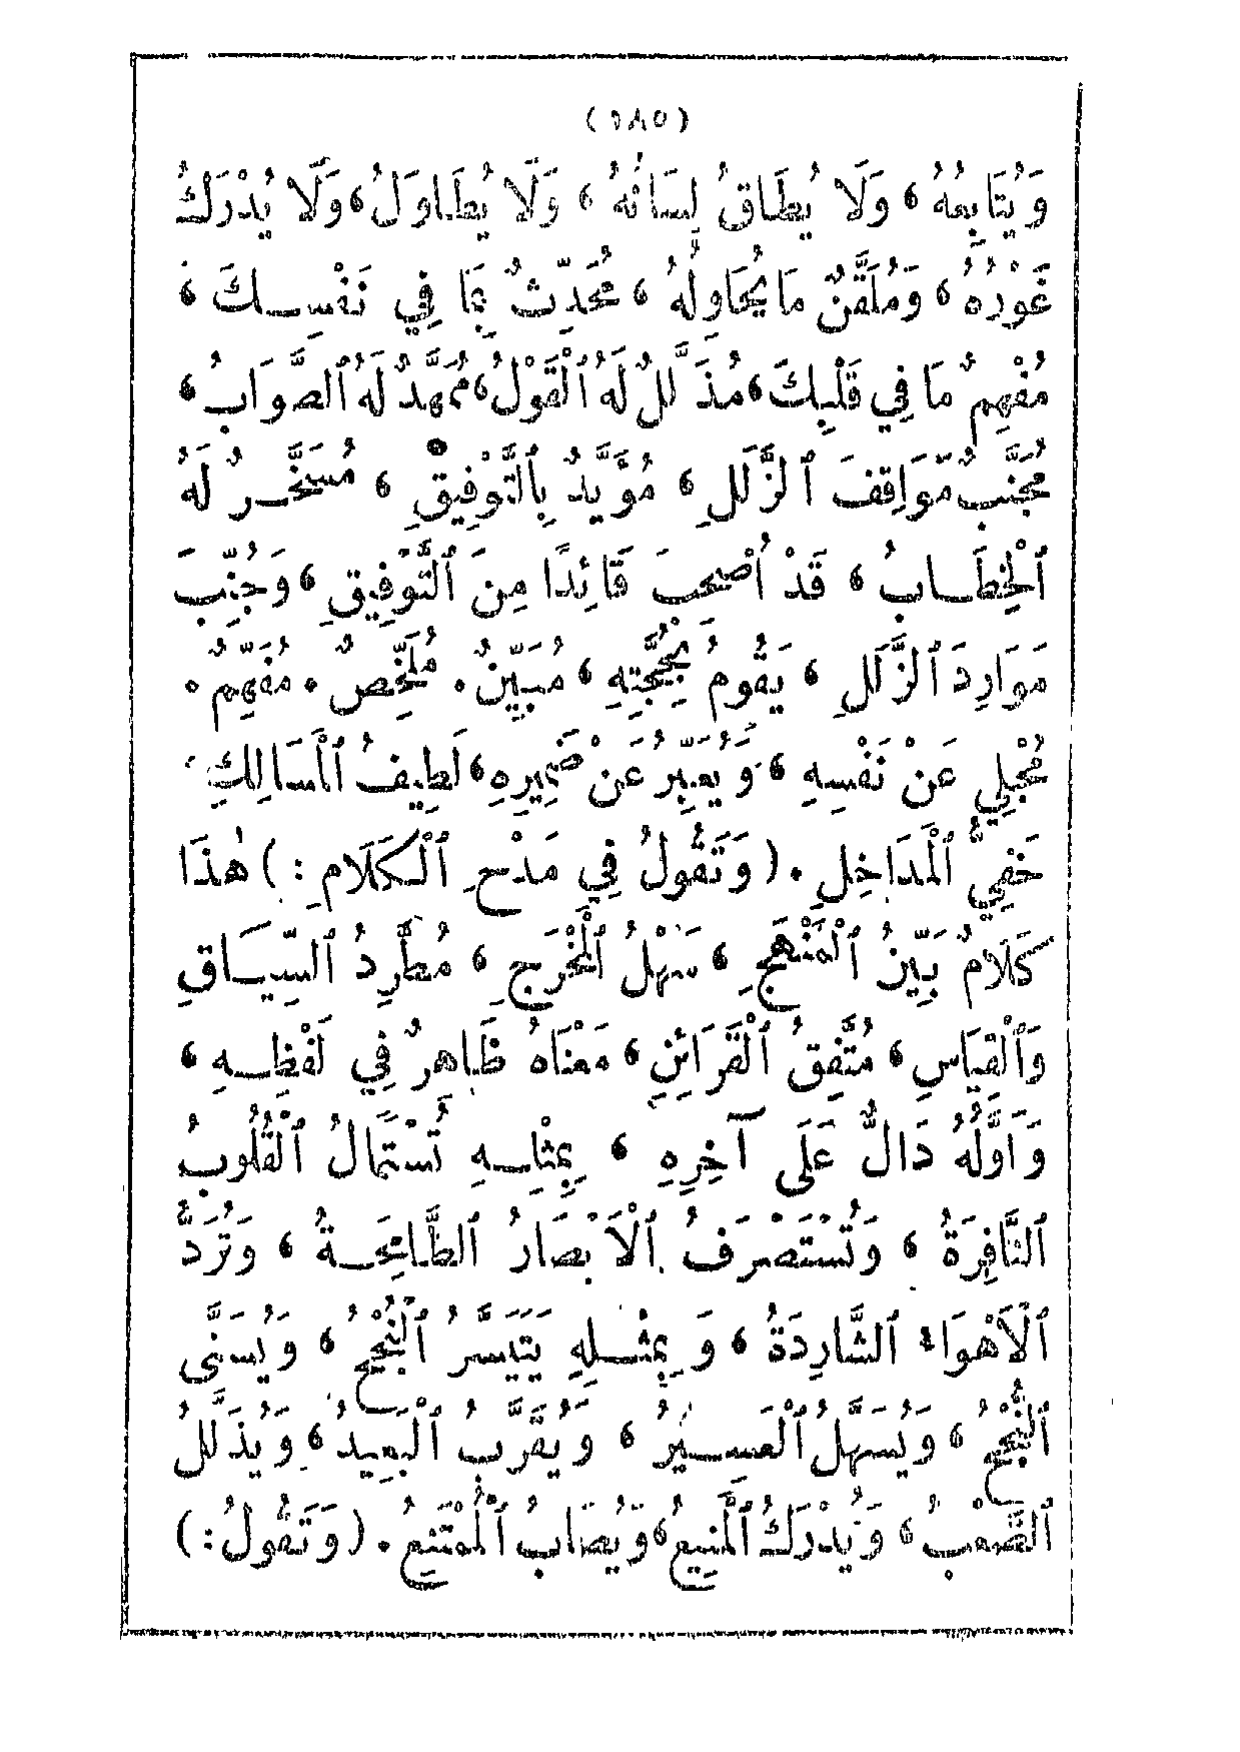 (١٨٥)
وَيُتَابِعُهُ، وَلَا يُطَاقُ لِسَانُهُ، وَلَا يُطَاوَلُ، وَلَا يُدْرَكُ
غَوْرُهُ، وَمُلَقَّنٌ مَا يُحَاوِلُهُ، مُحَدِّثٌ بِمَا فِي نَفْسِكَ،
مُفْهِمٌ مَا فِي قَلْبِكَ، مُذَلَّلٌ لَهُ ٱلْقَوْلُ، مُمَهَّدٌ لَهُ ٱلصَّوَابُ،
مُجَنَّبٌ مَّوَاقِفَ ٱلزَّلَلِ، مُؤَيَّدٌ بِٱلتَّوْفِيقِ، مُسَخَّرٌ لَهُ
ٱلْخِطَابُ، قَدْ أُصْحِبَ قَائِدًا مِنَ ٱلتَّوْفِيقِ، وَجُنِّبَ
مَوَارِدَ ٱلزَّلَلِ، يَقُومُ بِحُجَّتِهِ، مُبَيِّنٌ. مُلَخِّصٌ. مُفَهِّمٌ.
مُجْلِي عَنْ نَفْسِهِ، وَيُعَبِّرُ عَنْ ضَمِيرِهِ، لَطِيفُ ٱلْمَسَالِكِ
خَفِيُّ ٱلْمَدَاخِلِ. (وَتَقُولُ فِي مَدْحِ ٱلْكَلَامِ:) هٰذَا
كَلَامٌ بَيِّنُ ٱلْمَنْهَجِ، سَهْلُ ٱلْمَخْرَجِ، مُطَّرِدُ ٱلسِّيَاقِ
وَٱلْقِيَاسِ، مُتَّفِقُ ٱلْقَرَائِنِ، مَعْنَاهُ ظَاهِرٌ فِي لَفْظِهِ،
وَأَوَّلُهُ دَالٌّ عَلَى آخِرِهِ، بِمِثْلِهِ تُسْتَمَالُ ٱلْقُلُوبُ
ٱلنَّافِرَةُ، وَتُسْتَصْرَفُ ٱلْأَبْصَارُ ٱلطَّامِحَةُ، وَتُرَدُّ
ٱلْأَهْوَاءُ ٱلشَّارِدَةُ، وَبِمِثْلِهِ يَتَيَسَّرُ ٱلنُّجْحُ، وَيُسَنَّى
ٱلنُّجْحُ، وَيُسَهَّلُ ٱلْعَسِيرُ، وَيُقَرَّبُ ٱلْبَعِيدُ، وَيُذَلَّلُ
ٱلصَّعْبُ، وَيُدْرَكُ ٱلْمَنِيعُ، وَيُصَابُ ٱلْمُمْتَنِعُ. (وَتَقُولُ:)